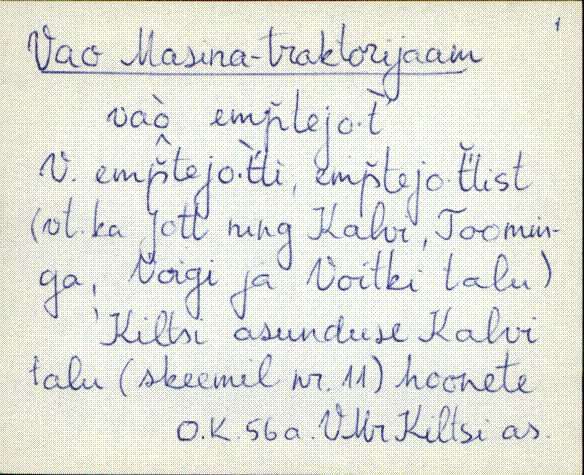 1
Vao Masina-traktorijaam
vaò em̆p̆tejo·t̀
V. em̆p̆tejo·t̀t̆li, em̆p̆tejo·t̆t̆list
(vt. ka Jott ning Kalvi, Toomin-
ga, Voigi ja Voitki talu)
'Kiltsi asunduse Kalvi
talu (skeemil nr. 11) hoonete
O.K. 56a. VMr Kiltsi as.